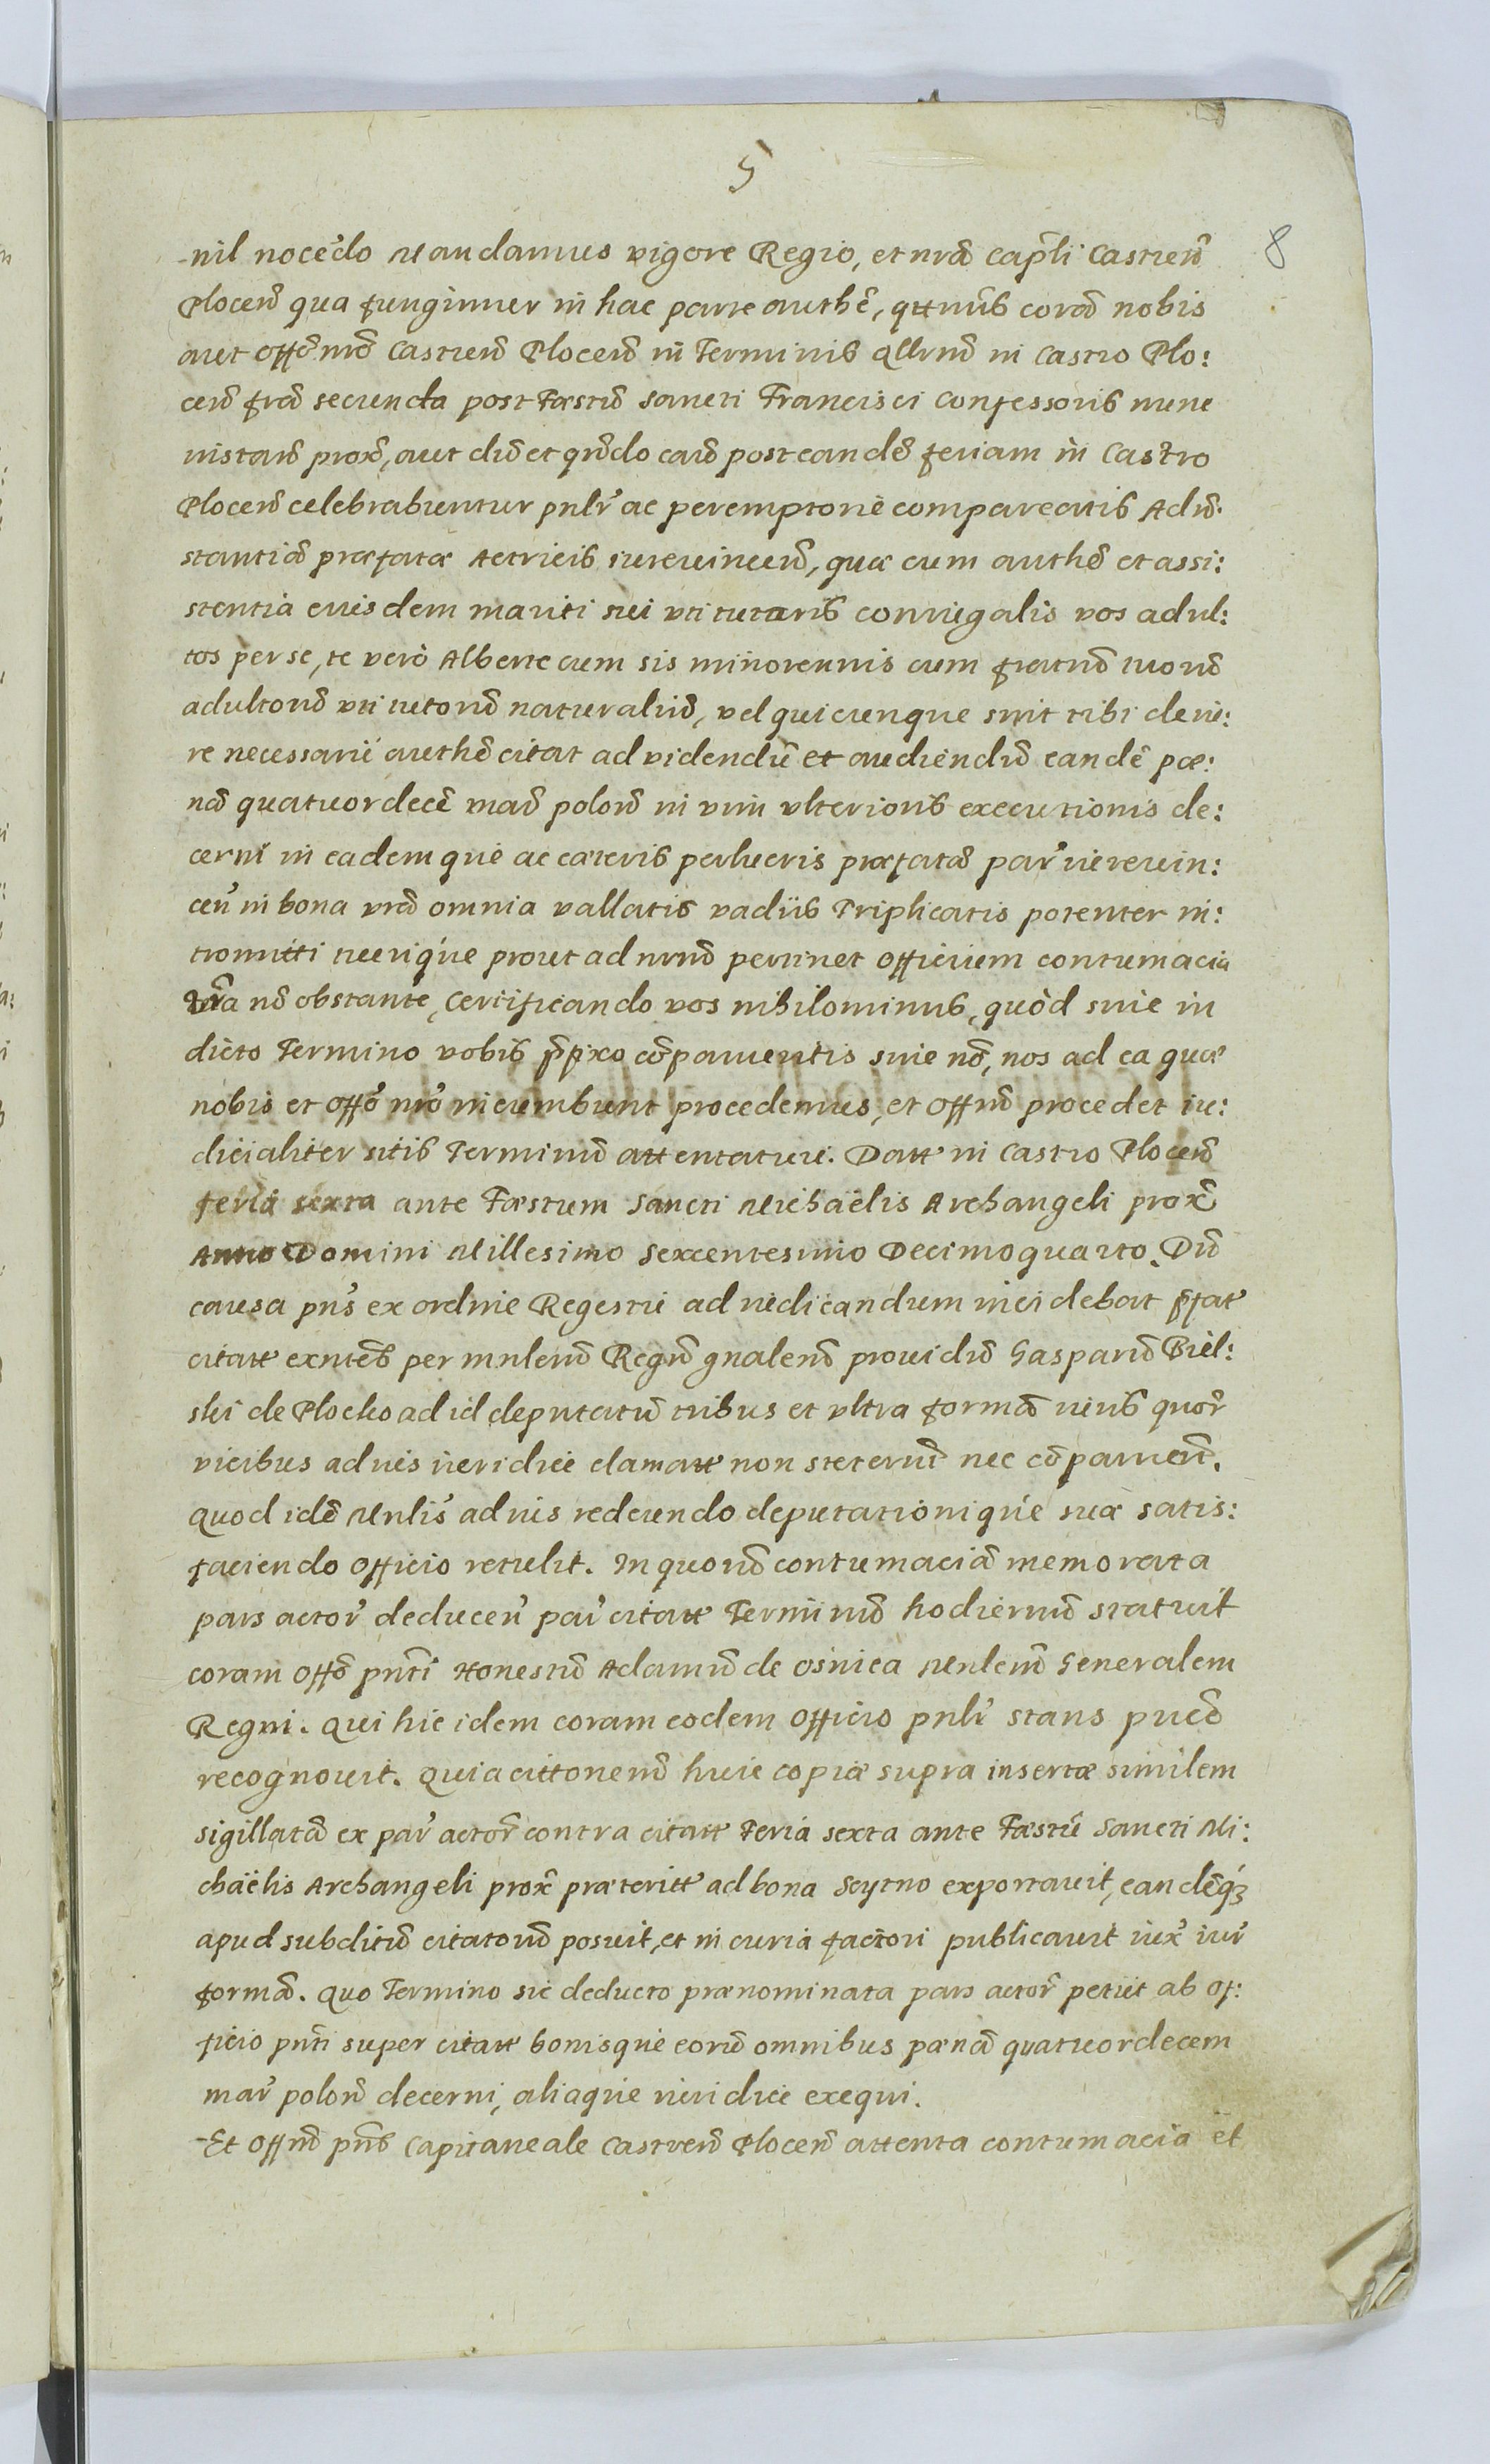 5
8
-nil nocēdo Mandamus vigore Regio, et nrā Capl̄i Castreñ
Ploceñ qua fungimur in hac parte authē, qtt̄nus corā nobis
aut offō nrō Castreñ Ploceñ in Terminis qllrnū in Castro Plo:
ceñ fraā secunda post Fæstū Sancti Francisci Confessoris nunc
instañ prox̄, aut dū et qn̄do eaū post eandē feriam in Castro
Ploceñ celebrabuntur pnlr̄ ac peremptoriè compareatis Ad in̄:
stantiā præfatæ Actricis iureuinceñ, quæ cum authē et assi:
stentia eiusdem mariti sui vti tutoris coniugalis vos adul:
tos per se, te verò Alberte cum sis minorennis cum fratrū tuorū
adultorū vti tutorū naturaliū, vel quicunque sint tibi de iu:
re necessariè authē citat ad videndū et audiendū eandē pæ:
nā quatuordecē mar̄ poloñ in vim vlterioris executionis de:
cerni in eademque ac cæteris perlucris præfatā par̄ iureuin:
ceñ in bona vrā omnia vallatis vadiis Triplicatis potenter in:
tromitti tuerique prout ad nrm̄ pertinet officium contumacia
vrā nō obstante, Certificando vos nihilominus, quòd siue in
dicto Termino vobis p̄fixo cōparueritis siue nō, nos ad ea quæ
nobis et offō nrō incumbunt procedemus, et offm̄ procedet iu:
dicialiter sitis Terminū attentaturi. Datt in Castro Ploceñ
feria sexta ante Fæstum Sancti Michaëlis Archangeli prox̄
Anno Domini Millesimo Sexcentesimo Decimoquarto. Dū
causa pn̄s ex ordine Regestri ad iudicandum incidebat p̄fat
citatt exnteš per mnlem̄ Regni gnalem̄ prouidū Gasparū Biel:
ski de Plocko ad id deputatū tribus et vltra formā iuris quor̄
vicibus ad iuš iuridicè clamatt non steterunt nec cōparuerūt.
Quod idē Mnliš ad iuš redeundo deputationique suæ satis:
faciendo officio retulit. In quorū contumaciā memorata
pars actor̄ deduceñ par̄ citatt Terminū hodiernū statuit
coram offō pnti Honestū Adamū de Osnica Mnlem̄ Generalem
Regni. Qui hic idem coram eodem officio pnlr̄ stans pucē
recognouit. Quia cittonem̄ huic copiæ supra insertæ similem
sigillatā ex par̄ actor̄ contra citatt Feria sexta ante Fæstū Sancti Mi:
chaëlis Archangeli prox̄ præteritt ad bona Scytno exportauit, eandēq́
apud subditū citatorū posuit, et in curia factori publicauit iux̄ iur̄
formā. Quo Termino sic deducto prænominata pars actor̄ petiit ab of:
ficio pnti super citatt bonisque eorū omnibus pænā quatuordecem
mar̄ poloñ decerni, aliaque iuridicè exequi.
-Et offm̄ pnš Capitaneale Castreñ Ploceñ attenta contumacia et